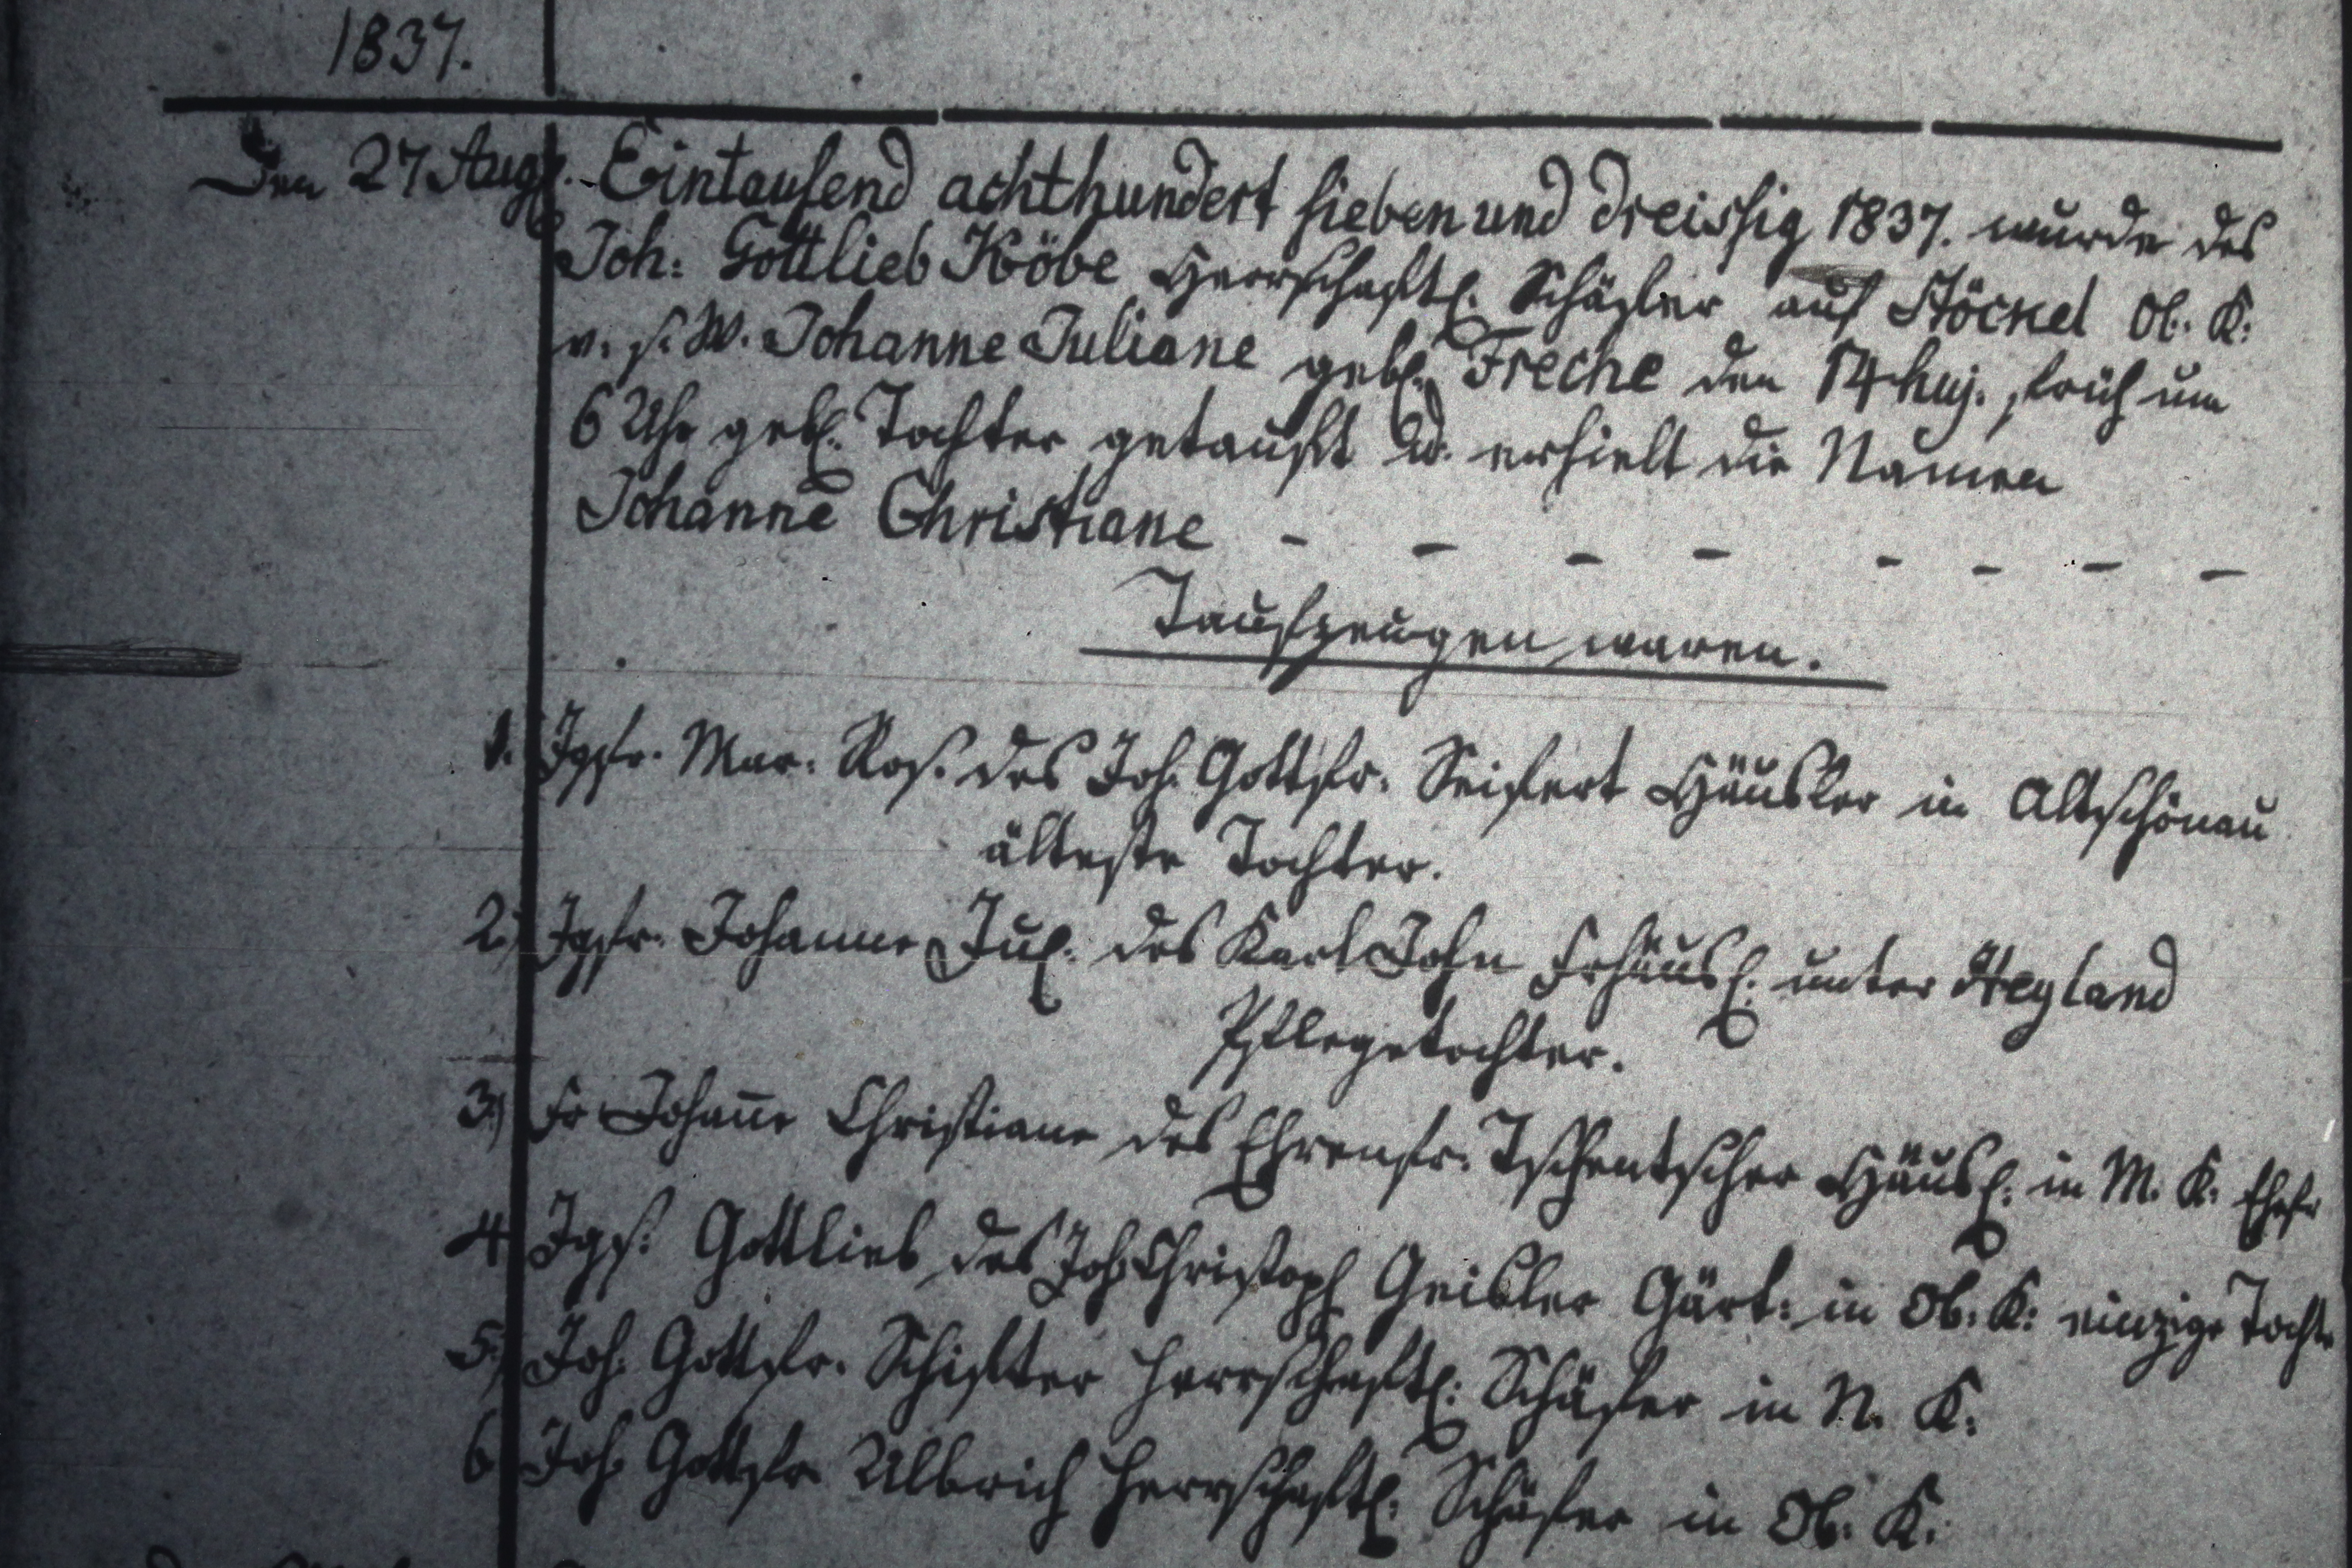 1837.
Den 27 Aug. Eintausend achthundert sieben und dreissig 1837. wurde des
Joh: Gottlieb Köbe Herrschaftl. Schäfer auf Stöckel Ob. K:
v. s. W. Johanne Juliane geb. Freche den 14 huj. früh um
6 Uhr geb. Tochter getauft u. erhielt die Namen
Johanne Christiane - - - - - - - -
Taufzeugen waren.
1. Jgfr. Mar. Ros. des Joh. Gottfr. Seifert Häusler in Altschönau
älteste Tochter.
2.) Jgfr. Johanne Jul. des Karl John Frhäusl. unter Heyland
Pflegetochter.
3.) Fr Johañe Christiane des Ehrenfr. Tschentscher Häusl. in M. K. Ehefr
4 Jgf. Gottlieb des Joh Christoph Geisler Gärt: in Ob. K: einzige Tochte
5.) Joh. Gottfr. Schifter herrschaftl. Schäfer in N. K.
6 Joh Gottfr Ulbrich herrschaftl. Schäfer in Ob. K.